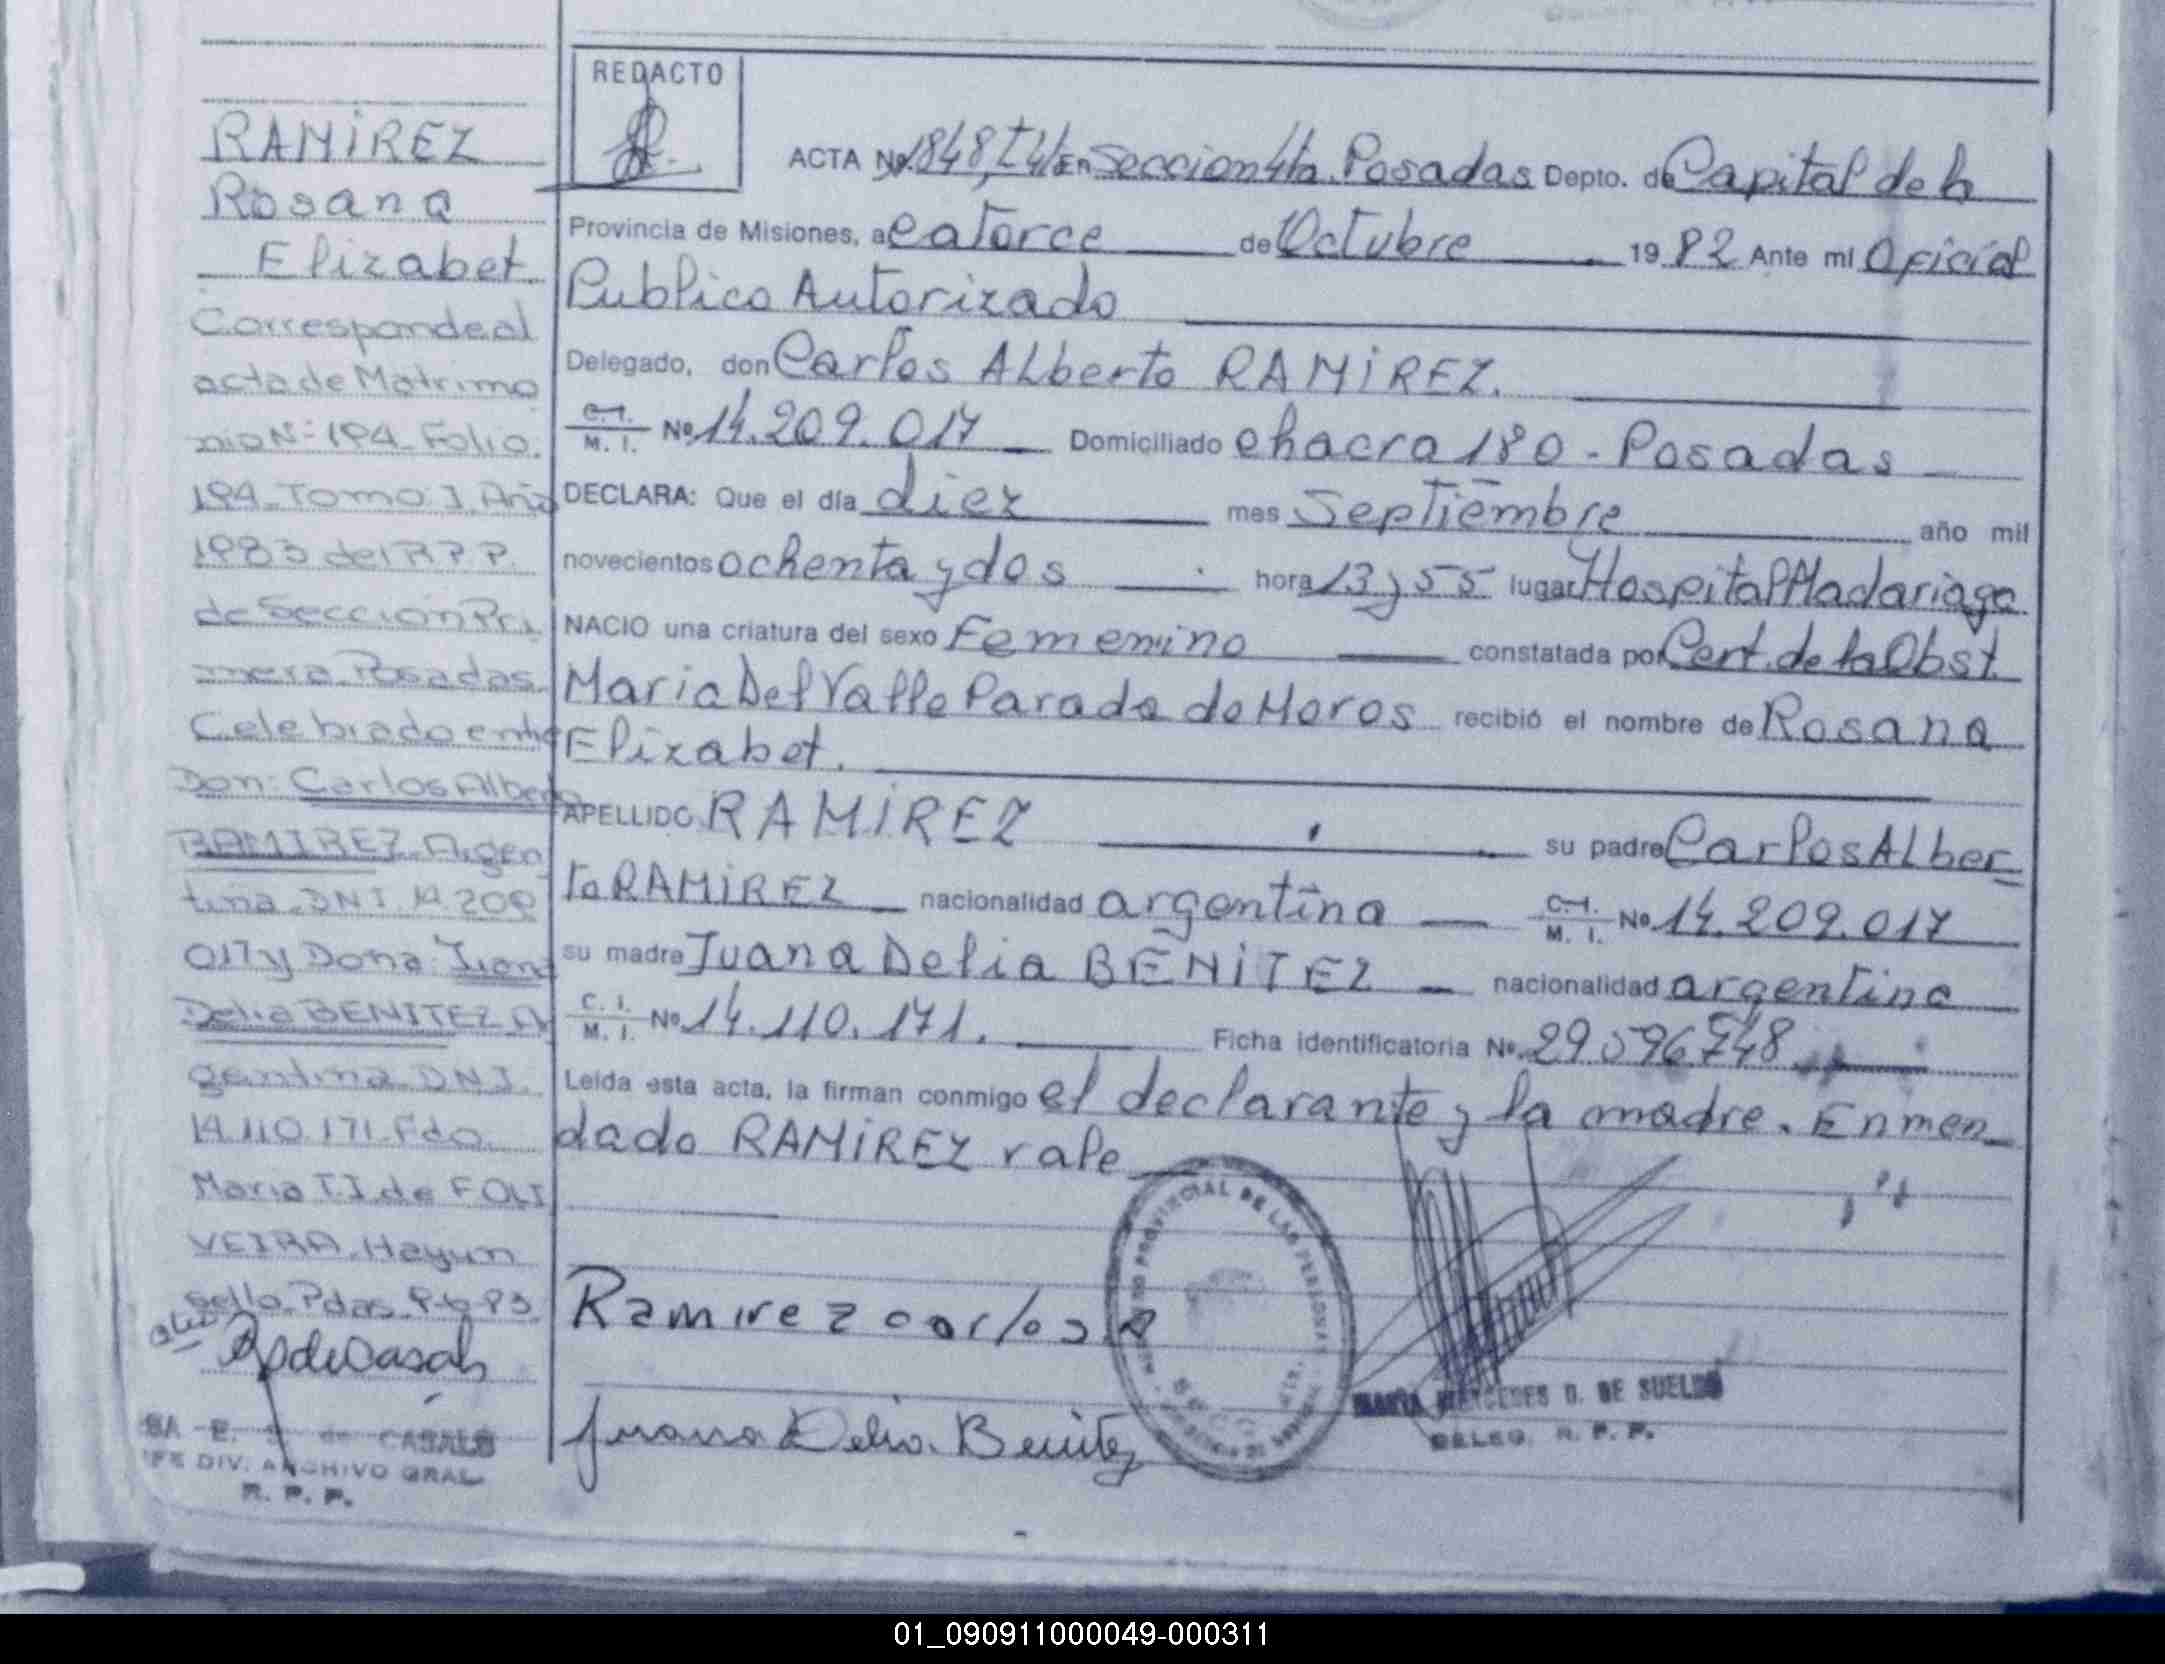 RAMIREZ
Rosana
Elizabet
Corresponde al
acta de Matrimo
nio Nº 194 Folio
194 Tomo I Año
1983 del R.P.P.
de Sección Pri
mera Posadas
Celebrado entre
Don: Carlos Alberto
RAMIREZ Argen
tina DNI 14.209
017 y Doña Juana
Delia BENITEZ Ar
gentina DNI
14.110.171 Fdo.
Maria T.I de FOLI
VEIRA. Hay un
sello. Pdas.
de CASALS
DIV. ARCHIVO GRAL
R. P. P.
REDACTO
ACTA Nº 1848, T4/ En Seccion 4ta. Posadas Depto. de Capital de la
Provincia de Misiones, a catorce de Octubre 1982 Ante mi Oficial
Publico Autorizado
Delegado, don Carlos Alberto RAMIREZ.
C.I. M. I. Nº 14.209.017 Domiciliado chacra 180 - Posadas
DECLARA: Que el día diez mes Septiembre año mil
novecientos ochenta y dos hora 13 y 55 lugar Hospital Madariaga
NACIO una criatura del sexo Femenino constatada por Cert. de la Obst.
Maria Del Valle Parada de Moros recibió el nombre de Rosana
Elizabet.
APELLIDO RAMIREZ su padre Carlos Alber
to RAMIREZ nacionalidad argentina C.I. M. I. Nº 14.209.017
su madre Juana Delia BENITEZ nacionalidad argentina
C. I. M. I. Nº 14.110.171. Ficha identificatoria Nº 29.596.748
Leida esta acta, la firman conmigo el declarante y la madre. Enmen
dado RAMIREZ vale
Ramirez carlos A
Juana Delia Benitez
PROVINCIAL DE LAS PERSONAS
MARIA MERCEDES D. DE SUELDO
DELEG. R. P. P.
01_090911000049-000311